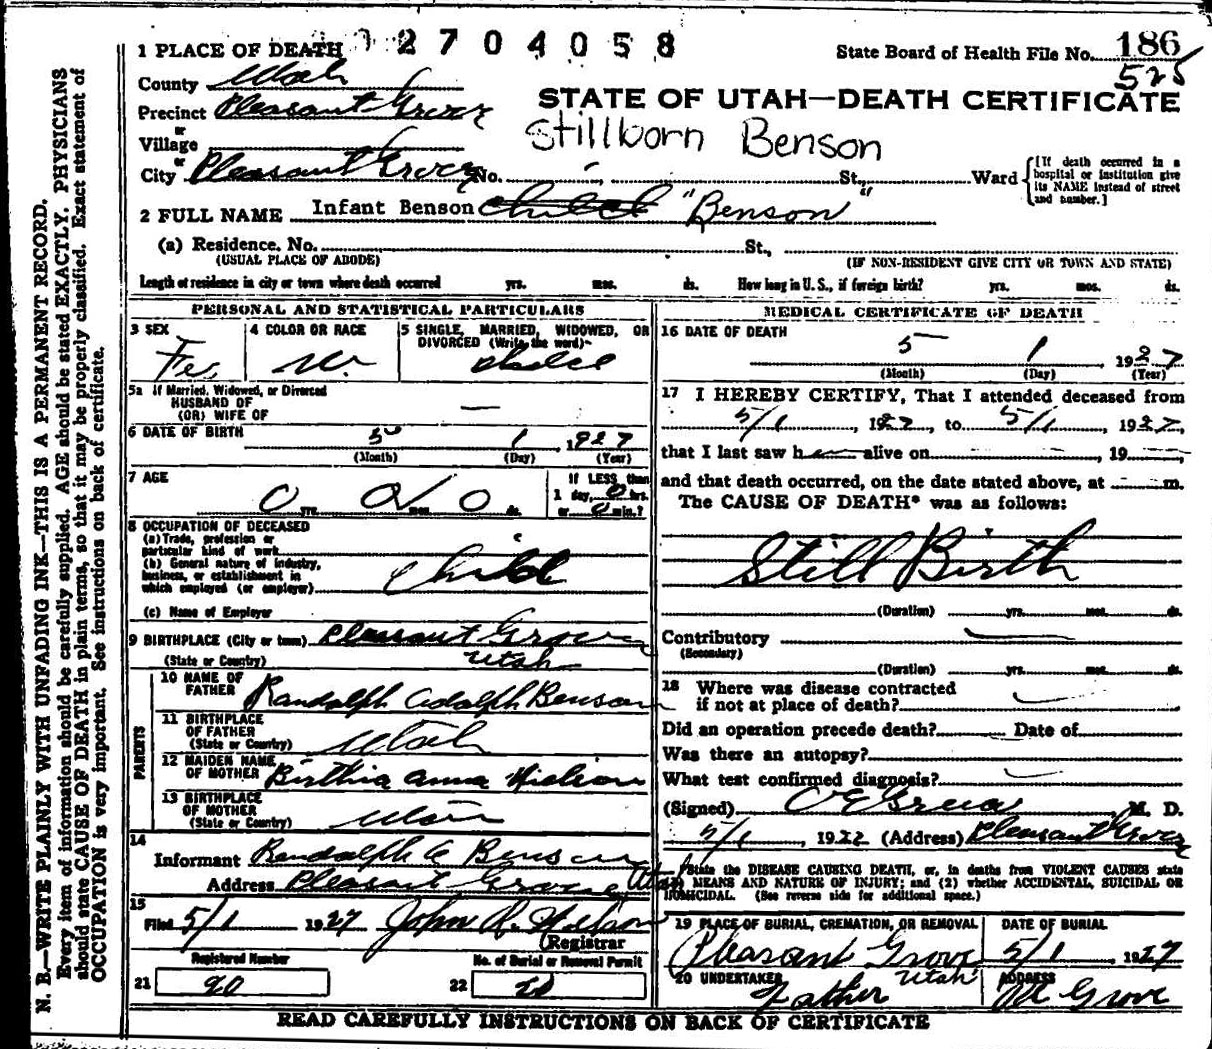 2 7 0 4 0 5 8
1 PLACE OF DEATH
State Board of Health File No. 186
525
County Utah
STATE OF UTAH—DEATH CERTIFICATE
Precinct Pleasant Grove
or
Village
Stillborn Benson
or
City Pleasant Grove No. St., Ward
[If death occurred in a
hospital or institution give
its NAME instead of street
and number.]
2 FULL NAME Infant Benson "Benson"
(a) Residence. No. St.,
(USUAL PLACE OF ABODE)
(IF NON-RESIDENT GIVE CITY OR TOWN AND STATE)
Length of residence in city or town where death occurred yrs. mos. ds. How long in U. S., if foreign birth? yrs. mos. ds.
PERSONAL AND STATISTICAL PARTICULARS
3 SEX
Fe.
4 COLOR OR RACE
W.
5 SINGLE, MARRIED, WIDOWED, OR
DIVORCED (Write the word)
5a If Married, Widowed, or Divorced
HUSBAND OF
(OR) WIFE OF —
6 DATE OF BIRTH 5 1 1927
(Month) (Day) (Year)
7 AGE
0 yrs. 0 mos. 0 ds.
If LESS than
1 day, 0 hrs.
or 0 min.?
8 OCCUPATION OF DECEASED
(a) Trade, profession or
particular kind of work
(b) General nature of industry,
business, or establishment in
which employed (or employer) Child
(c) Name of Employer
9 BIRTHPLACE (City or town) Pleasant Grove
(State or Country) Utah
PARENTS
10 NAME OF
FATHER Randolph Adolph Benson
11 BIRTHPLACE
OF FATHER
(State or Country) Utah
12 MAIDEN NAME
OF MOTHER Birthia Anna Nielson
13 BIRTHPLACE
OF MOTHER
(State or Country) Utah
14
Informant Randolph A Benson
Address Pleasant Grove Utah
15
Filed 5/1 1927 John R.
Registrar
Registered Number
21 20
No. of Burial or Removal Permit
22 20
MEDICAL CERTIFICATE OF DEATH
16 DATE OF DEATH
5 1 1927
(Month) (Day) (Year)
17 I HEREBY CERTIFY, That I attended deceased from
5/1, 1927, to 5/1, 1927,
that I last saw h alive on , 19
and that death occurred, on the date stated above, at m.
The CAUSE OF DEATH* was as follows:
Still Birth
(Duration) yrs. mos. ds.
Contributory
(Secondary)
(Duration) yrs. mos. ds.
18 Where was disease contracted
if not at place of death?
Did an operation precede death? Date of
Was there an autopsy?
What test confirmed diagnosis?
(Signed) M. D.
5/1 1927 (Address) Pleasant Grove
*State the DISEASE CAUSING DEATH, or, in deaths from VIOLENT CAUSES state
MEANS AND NATURE OF INJURY; and (2) whether ACCIDENTAL, SUICIDAL OR
HOMICIDAL. (See reverse side for additional space.)
19 PLACE OF BURIAL, CREMATION, OR REMOVAL
Pleasant Grove
Utah
DATE OF BURIAL
5/1, 1927
20 UNDERTAKER
Father
ADDRESS
Pl Grove
READ CAREFULLY INSTRUCTIONS ON BACK OF CERTIFICATE
N. B.—WRITE PLAINLY WITH UNFADING INK—THIS IS A PERMANENT RECORD.
Every item of information should be carefully supplied. AGE should be stated EXACTLY. PHYSICIANS
should state CAUSE OF DEATH in plain terms, so that it may be properly classified. Exact statement of
OCCUPATION is very important. See instructions on back of certificate.